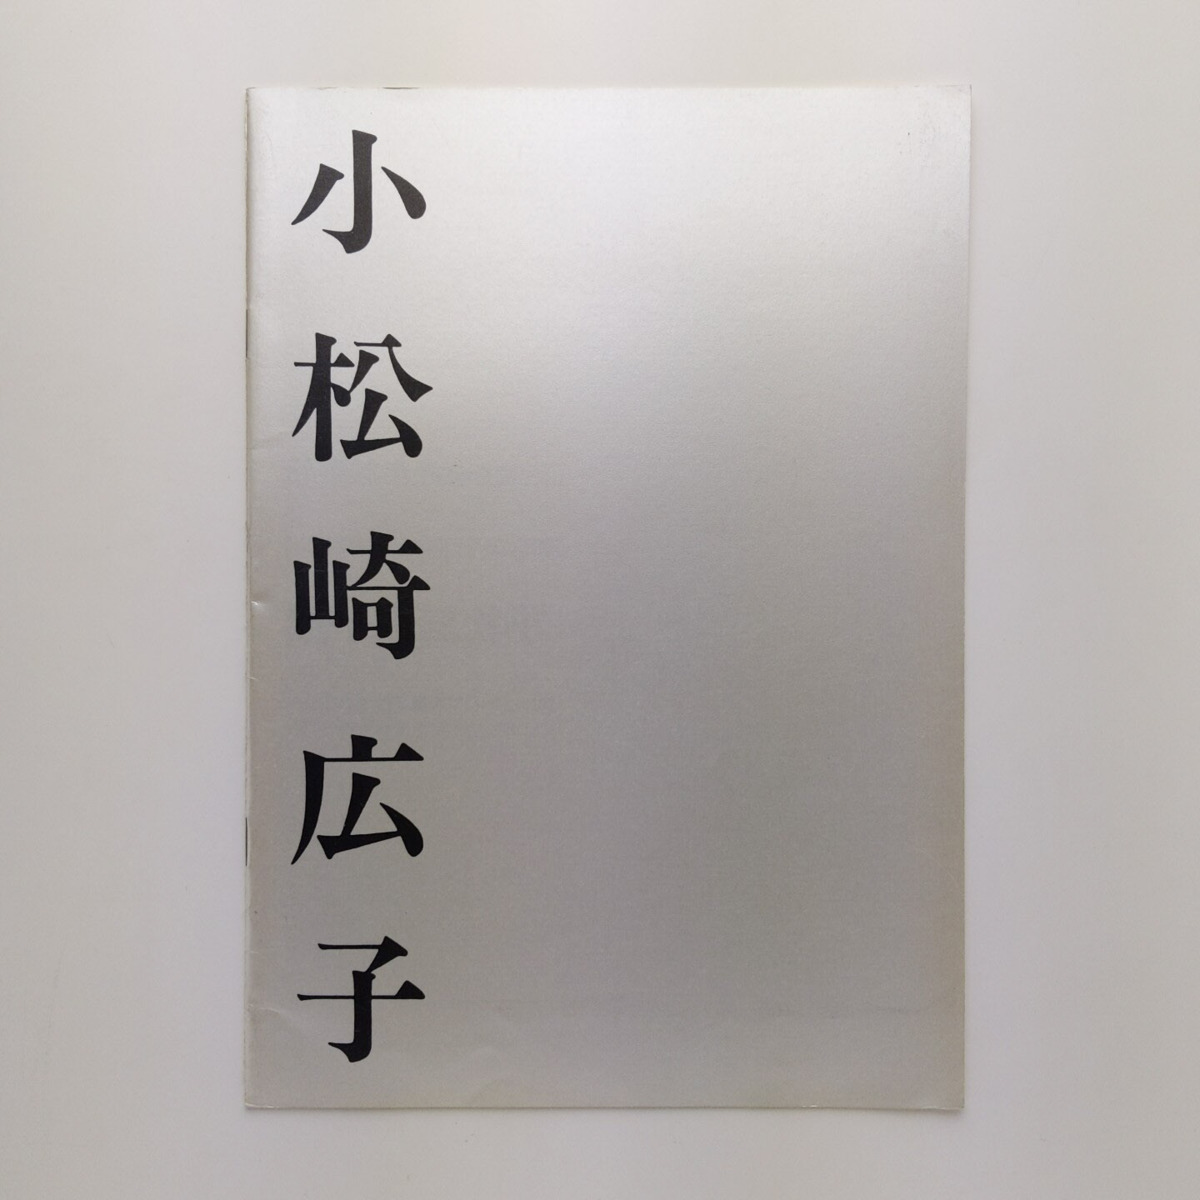 小松崎広子